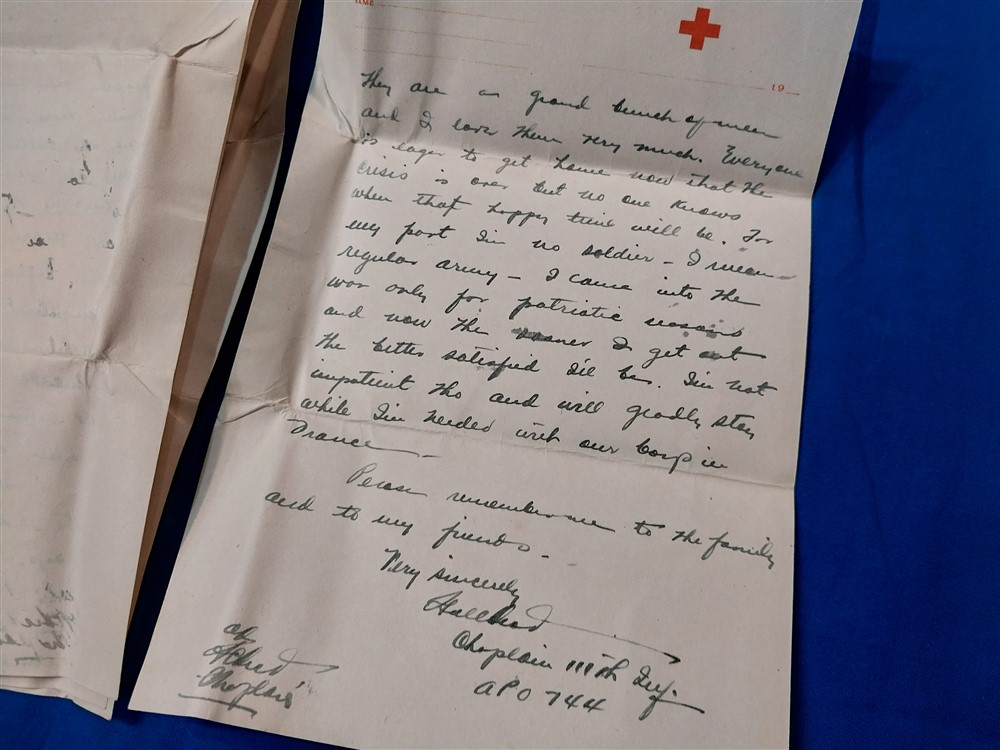 19
They are a grand bunch of men
and I love them very much. Everyone
is eager to get home now that the
crisis is over but no one knows
when that happy time will be. For
my part I'm no soldier - I mean
regular army - I came into the
war only for patriotic reasons
and now the sooner I get out
the better satisfied I'll be. I'm not
impatient tho and will gladly stay
while I'm needed with our boys in
France -
Please remember me to the family
and to my friends -
Very sincerely
Chaplain 111th Inf.
APO 744
Chaplain